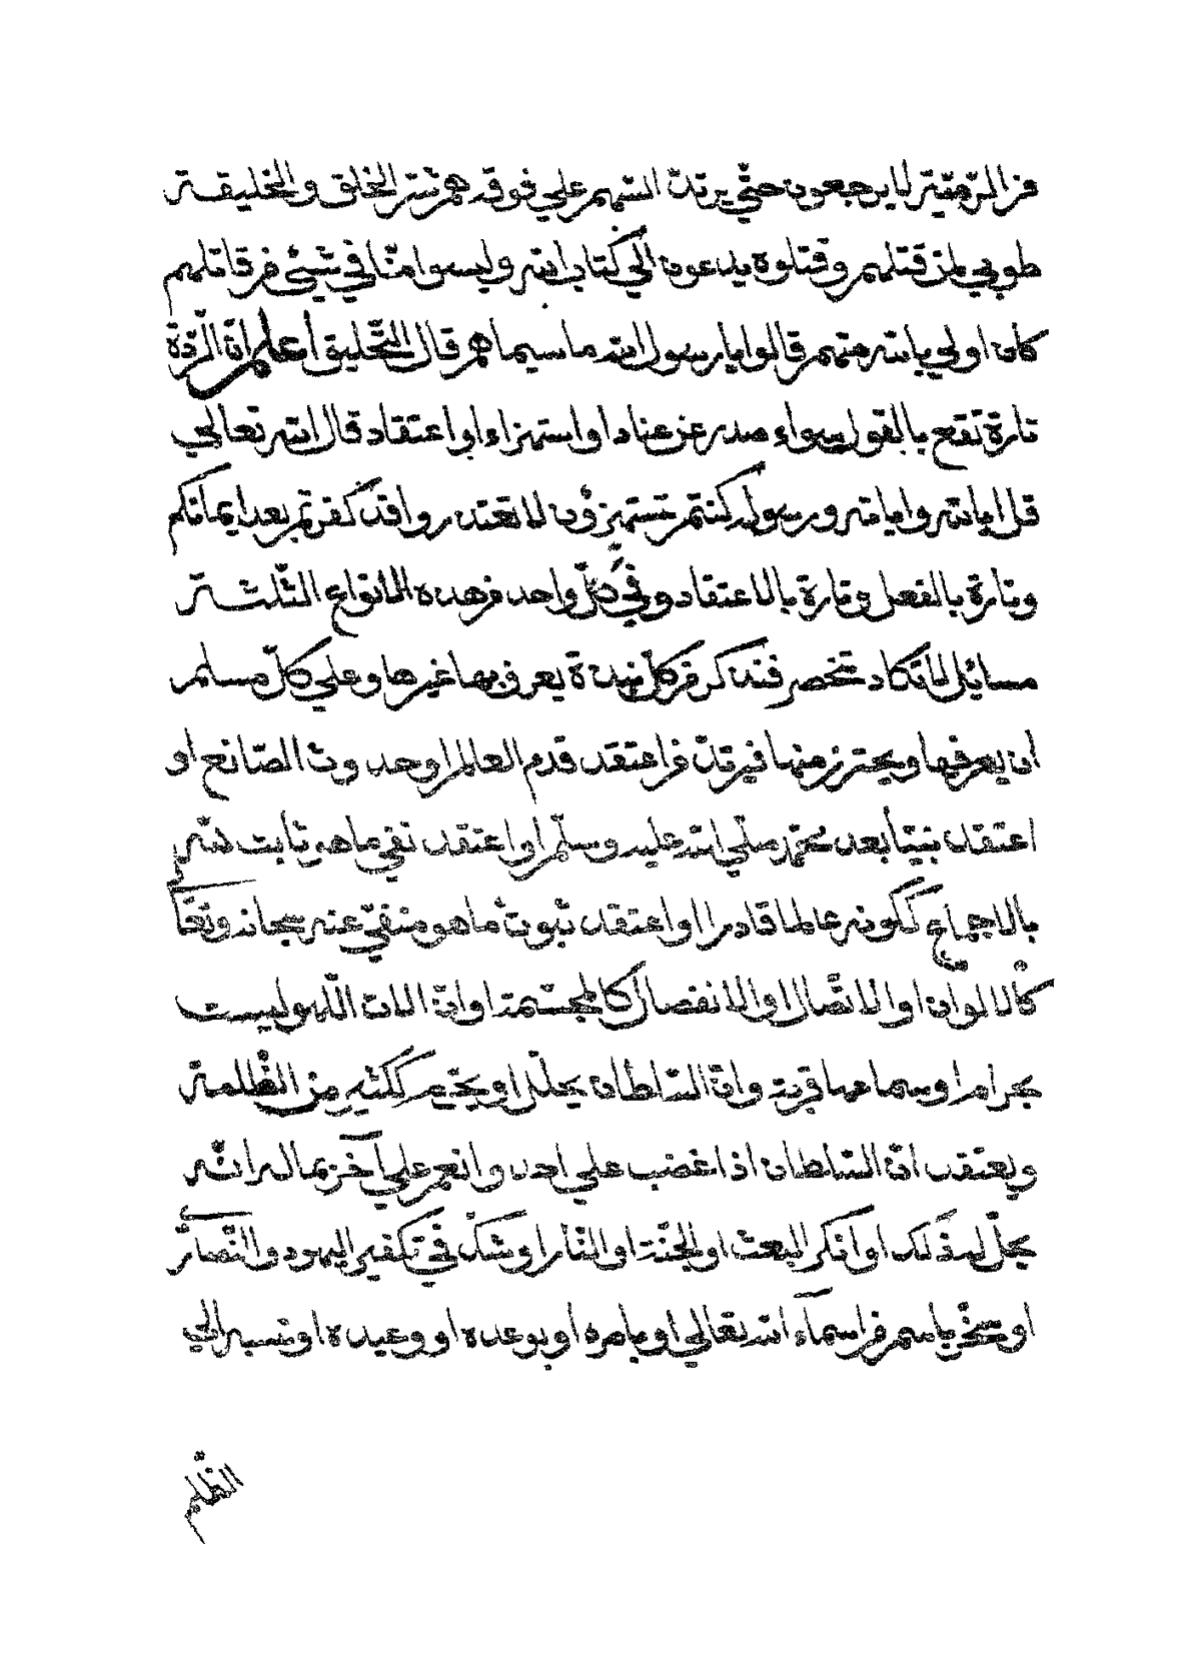 من الرّميّة لا يرجعون حتّي يرتدّ السّهم علي فوقه هم شرّ الخلق والخليقة
طوبي لمن قتلهم وقتلوه يدعون الي كتاب الله وليسوا منّا في شيئ من قاتلهم
كان اولي بالله منهم قالوا يا رسول الله ما سيماهم قال التّحليق أعلم انّ الرّدّة
تارة تقع بالقول سواء صدر عن عناد او استهزاء او اعتقاد قال الله تعالي
قل ابالله واياته ورسوله كنتم تستهزؤن لا تعتذروا قد كفرتم بعد ايمانكم
وتارة بالفعل وتارة بالاعتقاد وفي كلّ واحد من هذه الانواع الثّلثة
مسائل لا تكاد تحصر فنذكر من كلّ نبذة يعرف بها غيرها وعلي كلّ مسلم
ان يعرفها ويحترز منها فيرتدّ من اعتقد قدم العالم او حدوث الصّانع او
اعتقد نبيّا بعد محمّد صلّي الله عليه وسلّم او اعتقد نفي ما هو ثابت لله
بالاجماع ككونه عالما قادرا او اعتقد ثبوت ما هو منفيّ عنه سبحانه وتعالي
كالالوان او الاتّصال او الانفصال كالمجسّمة او انّ الات اللهو ليست
بحرام او سماعها قربة وانّ السّلطان يحلّل او يحرّم ككثير من الظّلمة
ويعتقد انّ السّلطان اذا غضب علي احد وانعم علي آخر بماله انّه
يحلّ له ذلك او انكر البعث او الجنّة او النّار او شكّ في تكفير اليهود والنّصاري
او سخّر باسم من اسماء الله تعالي او بامره او بوعده او وعيده او نسبه الي
الظّلم